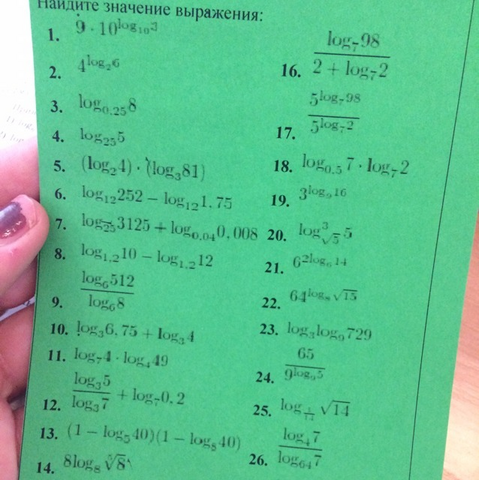 Найдите значение выражения:
1. 9 · 10^{log_{10} 3}
2. 4^{log_2 6}
3. log_{0.25} 8
4. log_{25} 5
5. (log_2 4) · (log_3 81)
6. log_{12} 252 − log_{12} 1,75
7. log_{25} 3125 + log_{0,04} 0,008
8. log_{1,2} 10 − log_{1,2} 12
9. \frac{log_6 512}{log_6 8}
10. log_3 6,75 + log_3 4
11. log_7 4 · log_4 49
12. \frac{log_3 5}{log_3 7} + log_7 0,2
13. (1 − log_5 40)(1 − log_8 40)
14. 8log_8 \sqrt[5]{8}
16. \frac{log_7 98}{2 + log_7 2}
17. \frac{5^{log_7 98}}{5^{log_7 2}}
18. log_{0.5} 7 · log_7 2
19. 3^{log_9 16}
20. log^3_{\sqrt{5}} 5
21. 6^{2log_6 14}
22. 64^{log_8 \sqrt{15}}
23. log_3 log_9 729
24. \frac{65}{9^{log_9 5}}
25. log_{\frac{1}{14}} \sqrt{14}
26. \frac{log_4 7}{log_{64} 7}